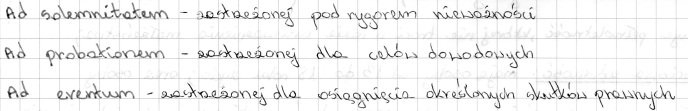 Ad solemnitatem - zastrzeżonej pod rygorem nieważności
Ad probationem - zastrzeżonej dla celów dowodowych
Ad eventum - zastrzeżonej dla osiągnięcia określonych skutków prawnych